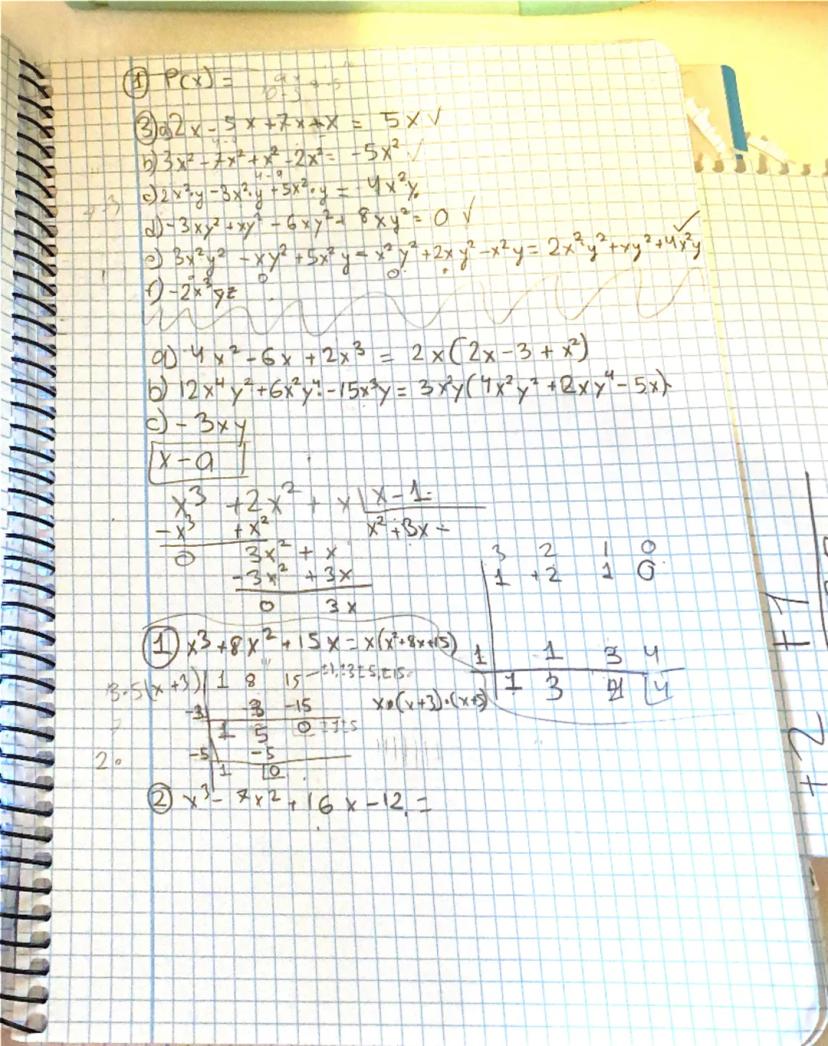 ① P(x) =
③ a) 2x - 5x + 7x + x = 5x ✓
b) 3x² - 7x² + x² - 2x² = -5x² ✓
c) 2x²·y - 3x²·y + 5x²·y = 4x²y
d) -3xy² + xy² - 6xy² + 8xy² = 0 ✓
e) 3x²y² - xy² + 5x²y - x²y² + 2xy² - x²y = 2x²y² + xy² + 4x²y ✓
f) -2x³yz
a) 4x² - 6x + 2x³ = 2x(2x - 3 + x²)
b) 12x⁴y² + 6x²y⁴ - 15x³y = 3x²y(4x²y² + 2xy⁴ - 5x)
c) - 3xy
x - a
x³ + 2x² + x | x - 1
-x³ + x² x² + 3x
0 3x² + x
-3x² + 3x
0 3x
3 2 1 0
1 +2 1 0
1 1 3 4
1 3 4 4
① x³ + 8x² + 15x = x(x² + 8x + 15)
3·5 (x+3) 1 8 15
-3 3 -15 x·(x+3)·(x+5)
1 5 0
-5 -5
1 0
② x³ - 7x² + 16x - 12 =
+7
+2